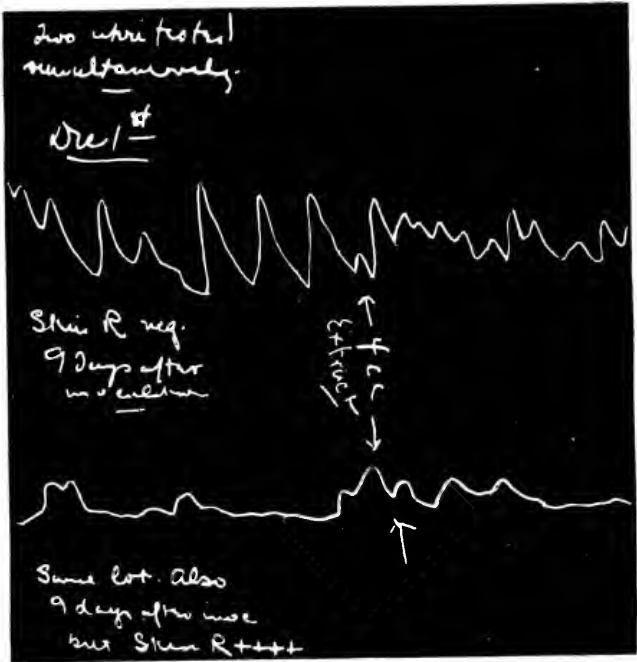 Two uteri tested
simultaneously.
Dec 1st
Skin R neg.
9 Days after
inoculation
4 cc
Extract
Same lot. Also
9 days after inoc
but Skin R ++++